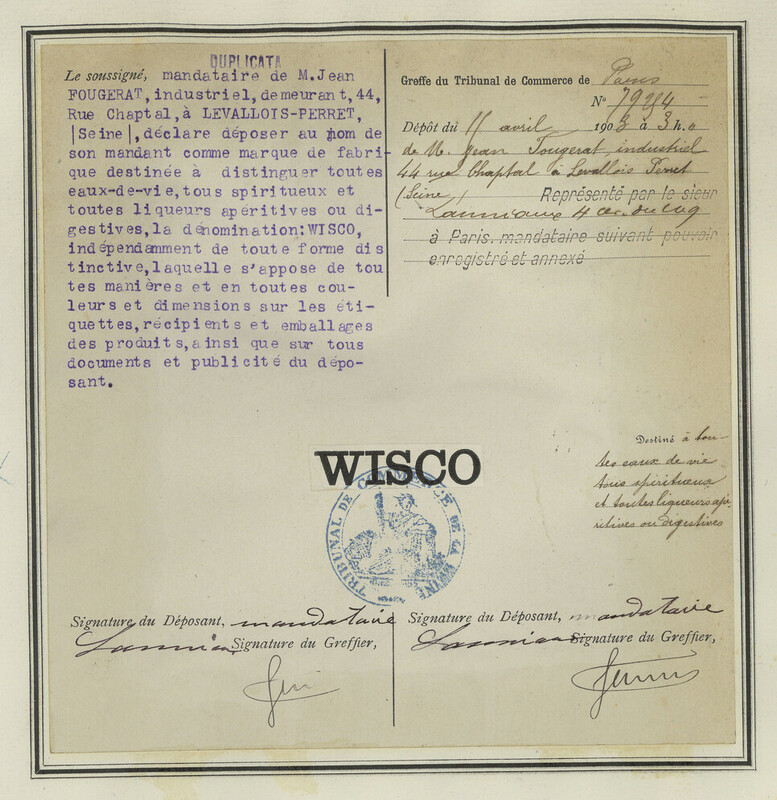 DUPLICATA
Le soussigné, mandataire de M.Jean
FOUGERAT,industriel,demeurant,44,
Rue Chaptal,à LEVALLOIS-PERRET,
|Seine|,déclare déposer au nom de
son mandant comme marque de fabri-
que destinée à distinguer toutes
eaux-de-vie,tous spiritueux et
toutes liqueurs apéritives ou di-
gestives,la dénomination:WISCO,
indépendamment de toute forme dis
tinctive,laquelle s'appose de tou
tes manières et en toutes cou-
leurs et dimensions sur les éti-
quettes,récipients et emballages
des produits,ainsi que sur tous
documents et publicité du dépo-
sant.
Greffe du Tribunal de Commerce de Paris
N°
Dépôt du 11 avril 1903 à 3h.
de M. Jean Fougerat, industriel
44 rue Chaptal à Levallois Perret
(Seine) Représenté par le sieur
à Paris, mandataire suivant pouvoir
enregistré et annexé
Destiné à tou-
tes eaux de vie
tous spiritueux
et toutes liqueurs apé-
ritives ou digestives
WISCO
TRIBUNAL DE COMMERCE DE LA SEINE
Signature du Déposant, mandataire
Signature du Greffier,
Signature du Déposant, mandataire
Signature du Greffier,